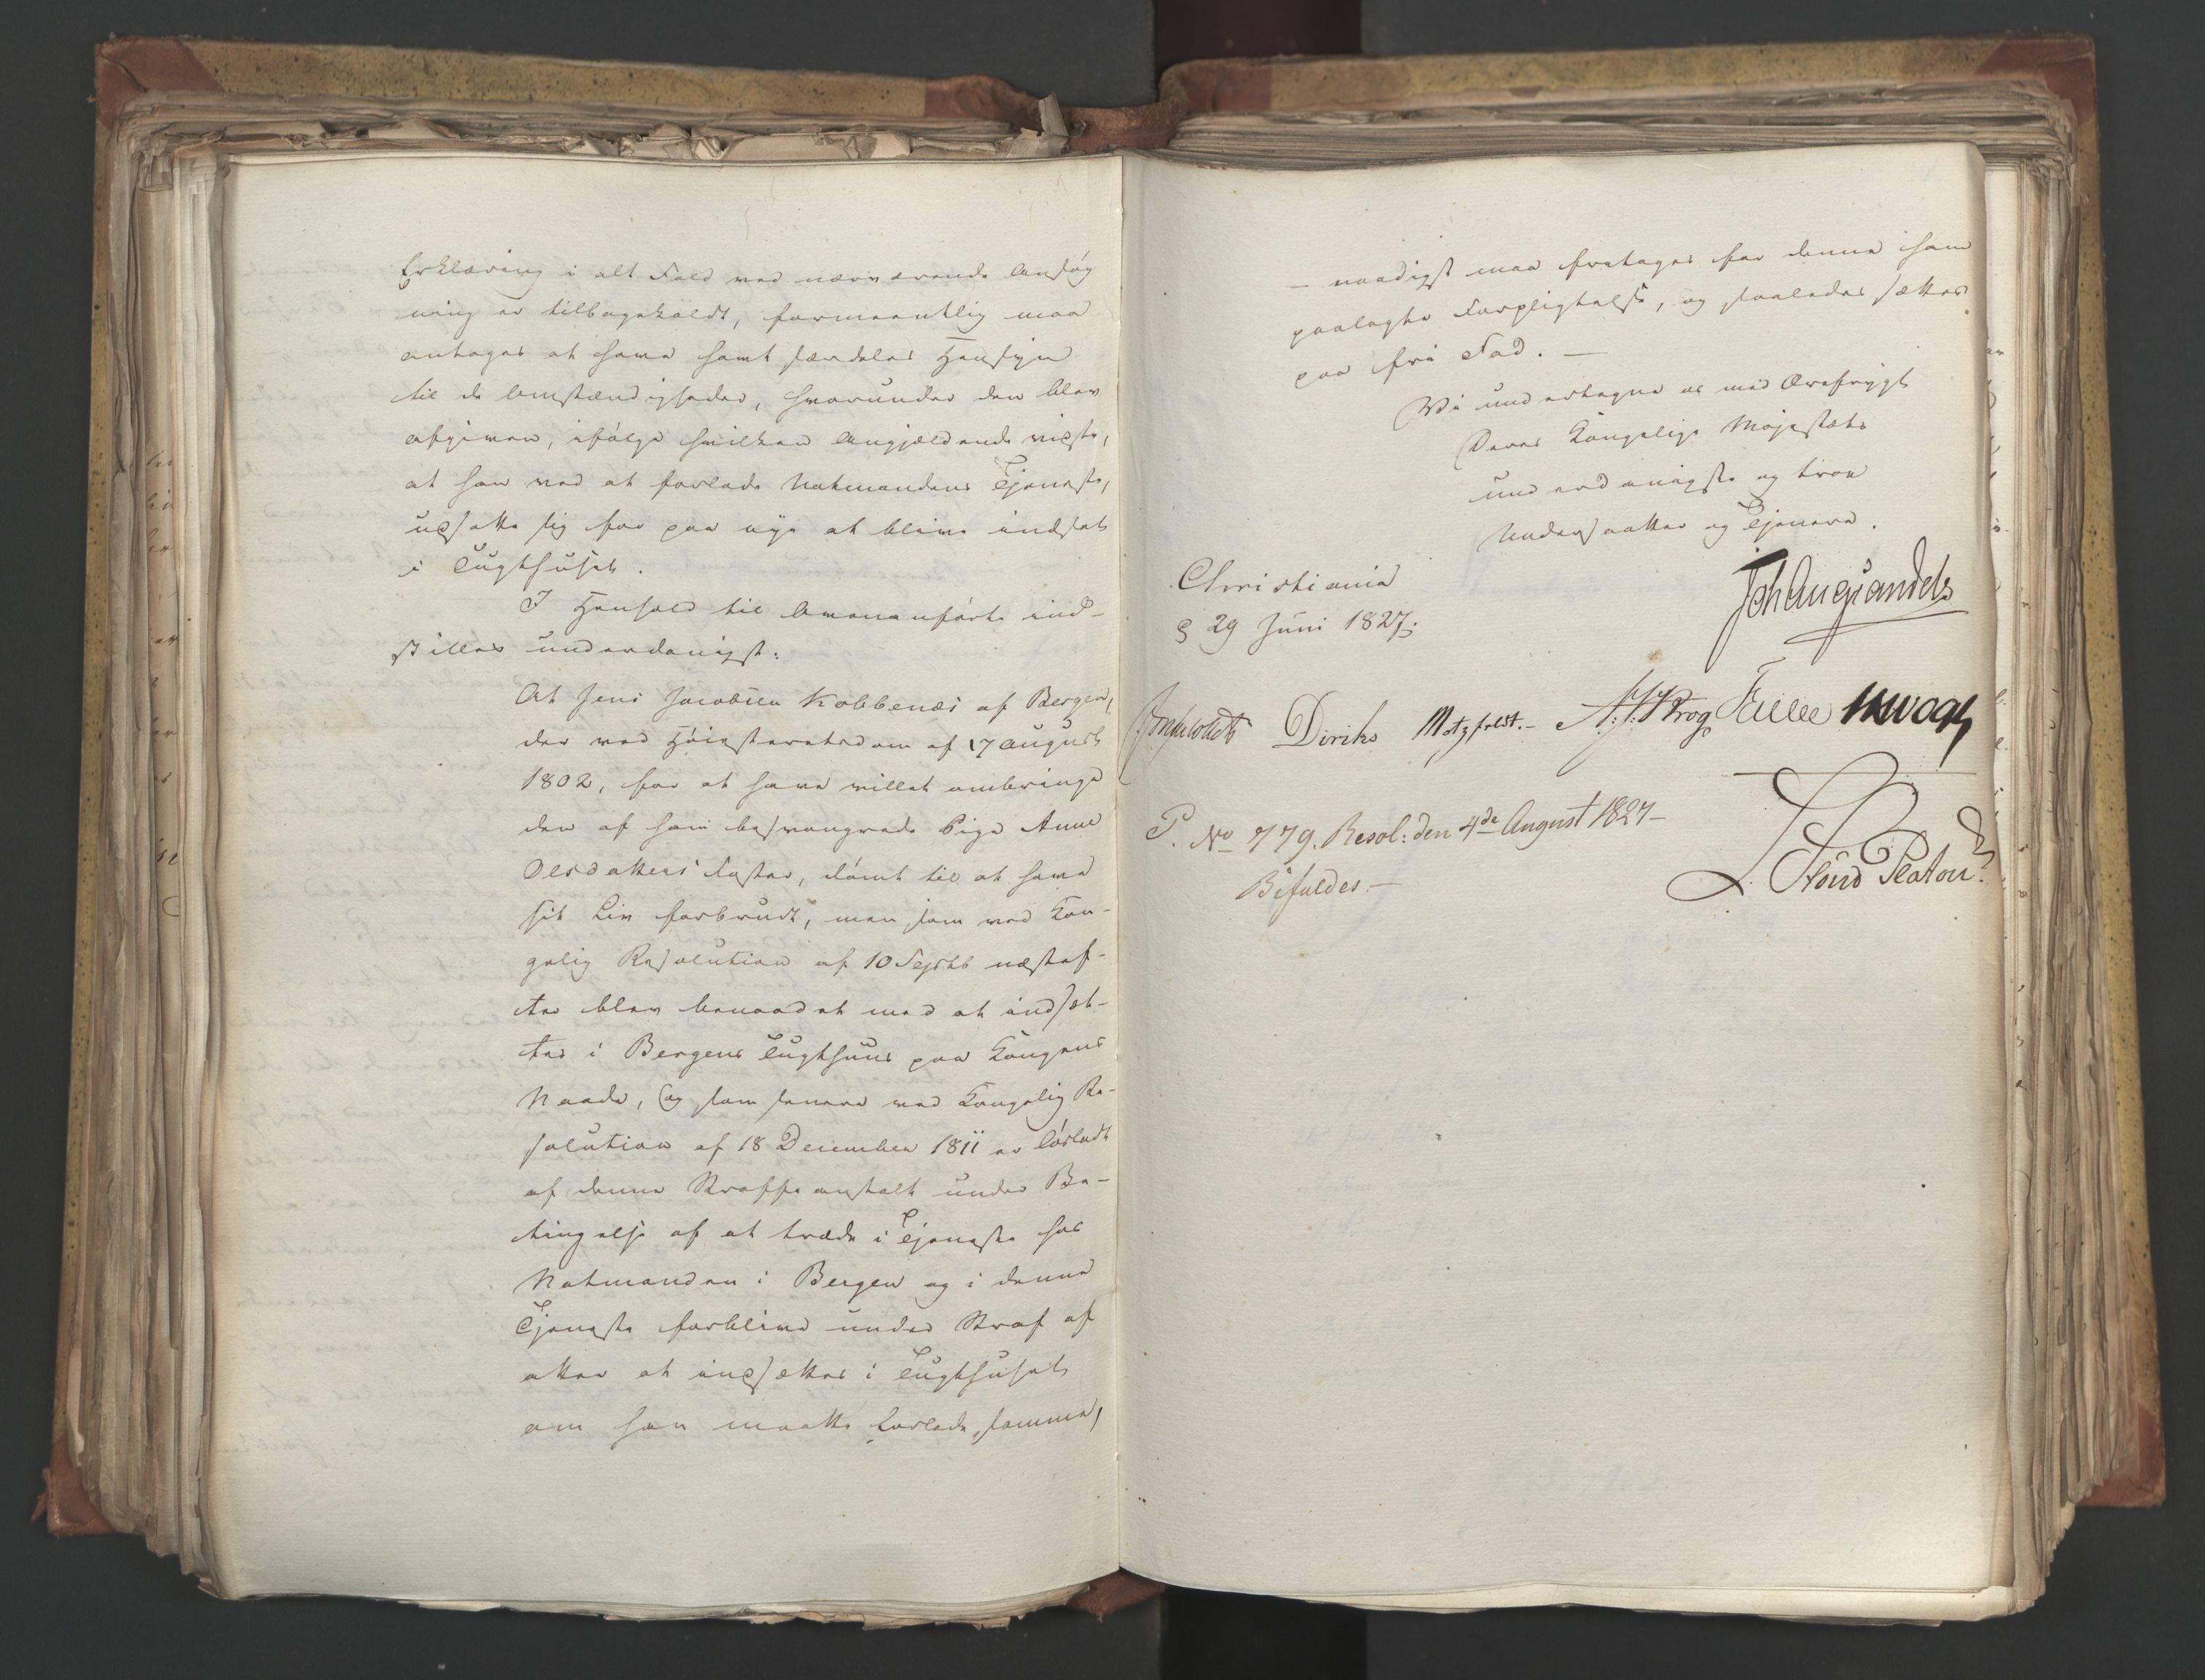 Erklæring i alt Fald ved nærværende Ansøg
ning er tilbagekaldt, formeentlig maa
antages at have havt særdeles Hensyn
til de Omstændigheder, hvorunder den blev
afgiven, ifølge hvilken Angjældende vidste,
at han ved at forlade Natmandens Tjeneste,
udsatte sig for paa nye at blive indsat
i Tugthuset.
I Henhold til Ovenanførte ind-
stilles underdanigst:
At Jens Jacobsen Kobbenæs af Bergen,
der ved Høiesteretsdom af 17 August
1802, for at have villet ombringe
den af ham besvangrede Pige Anne
Olsdatters Foster, dømt til at have
sit Liv forbrudt, men som ved Kon-
gelig Resolution af 10 Septbr næstef-
ter blev benaadet med at indsæt-
tes i Bergens Tugthuus paa Kongens
Naade, og som senere ved Kongelig Re-
solution af 18 December 1811 er løsladt
af denne Straffeanstalt under Be-
tingelse af at træde i Tjeneste hos
Natmanden i Bergen og i denne
Tjeneste forblive under Straf af
atter at indsættes i Tugthuset
om han maatte forlade samme,
- naadigst maa fritages for denne ham
paalagte Forpligtelse, og saaledes sættes
paa fri Fod. -
Vi undertegne os med Ærefrygt
Deres Kongelige Majestæts
underdanigste og troe
Undersaatter og Tjenere.
Christiania
d 29 Juni 1827.
Joh Aug Sandels
Diriks Motzfeldt. - Krog
P. No 779. Resol: den 4de August 1827 -
Bifaldes. -